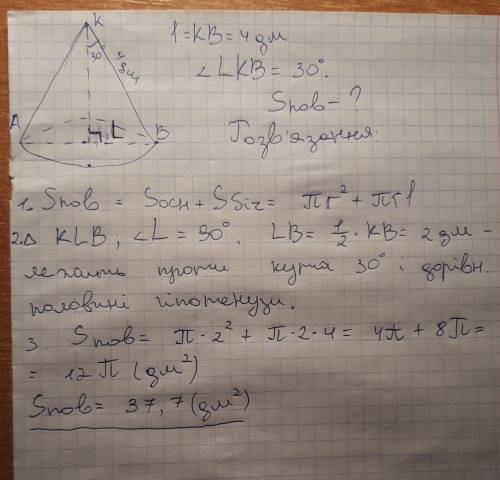 K
30°
4 дм
A
L
B
l = KB = 4 дм
∠LKB = 30°.
Sпов - ?
Розв'язання:
1. Sпов = Sосн + Sбіч = πr² + πrl
2. Δ KLB; ∠L = 90°. LB = 1/2 · KB = 2 дм -
лежить проти кута 30° і дорівн.
половині гіпотенузи.
3. Sпов = π · 2² + π · 2 · 4 = 4π + 8π =
= 12π (дм²)
Sпов = 37,7 (дм²)